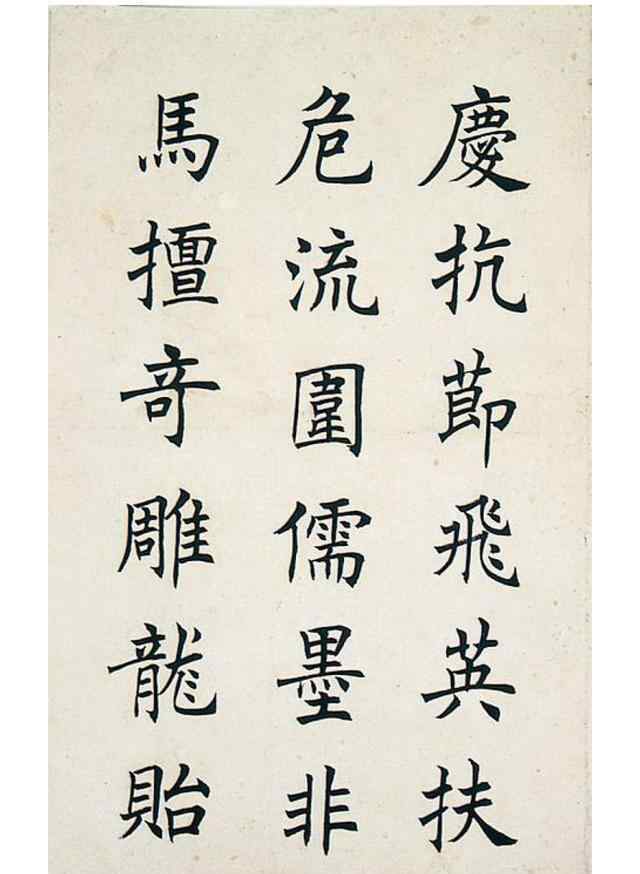 慶抗莭飛英扶
危流圍儒墨非
馬擅竒雕龍貽